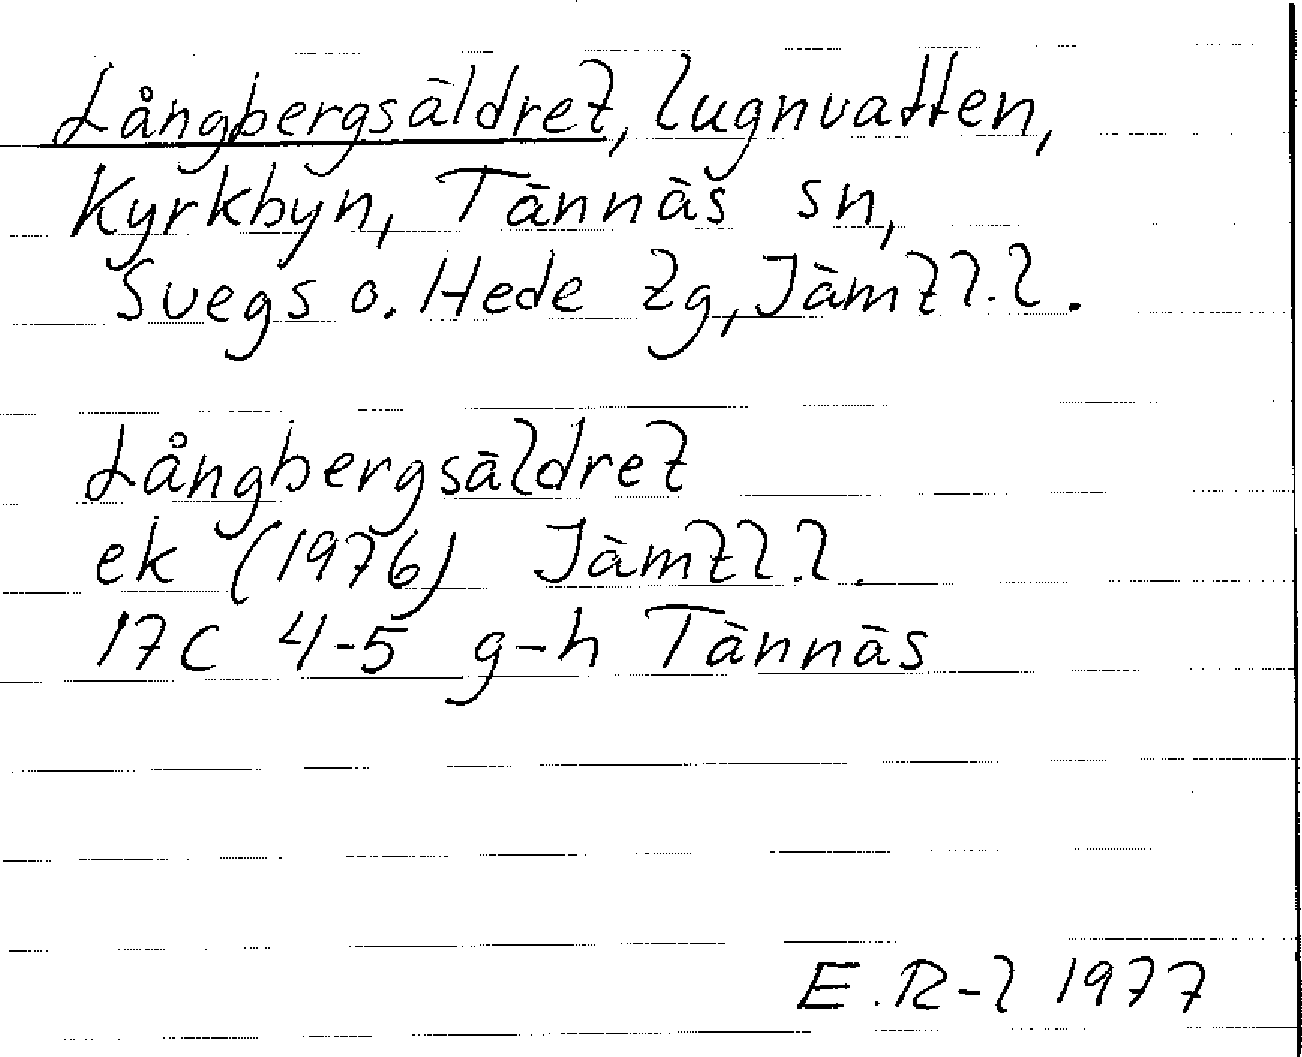 Långbergsäldret, lugnvatten,
Kyrkbyn, Tännäs sn,
Svegs o. Hede tg, Jämtl. l.
Långbergsäldret
ek (1976) Jämtl. l.
17C 4-5 g-h Tännäs
E. R-l 1977